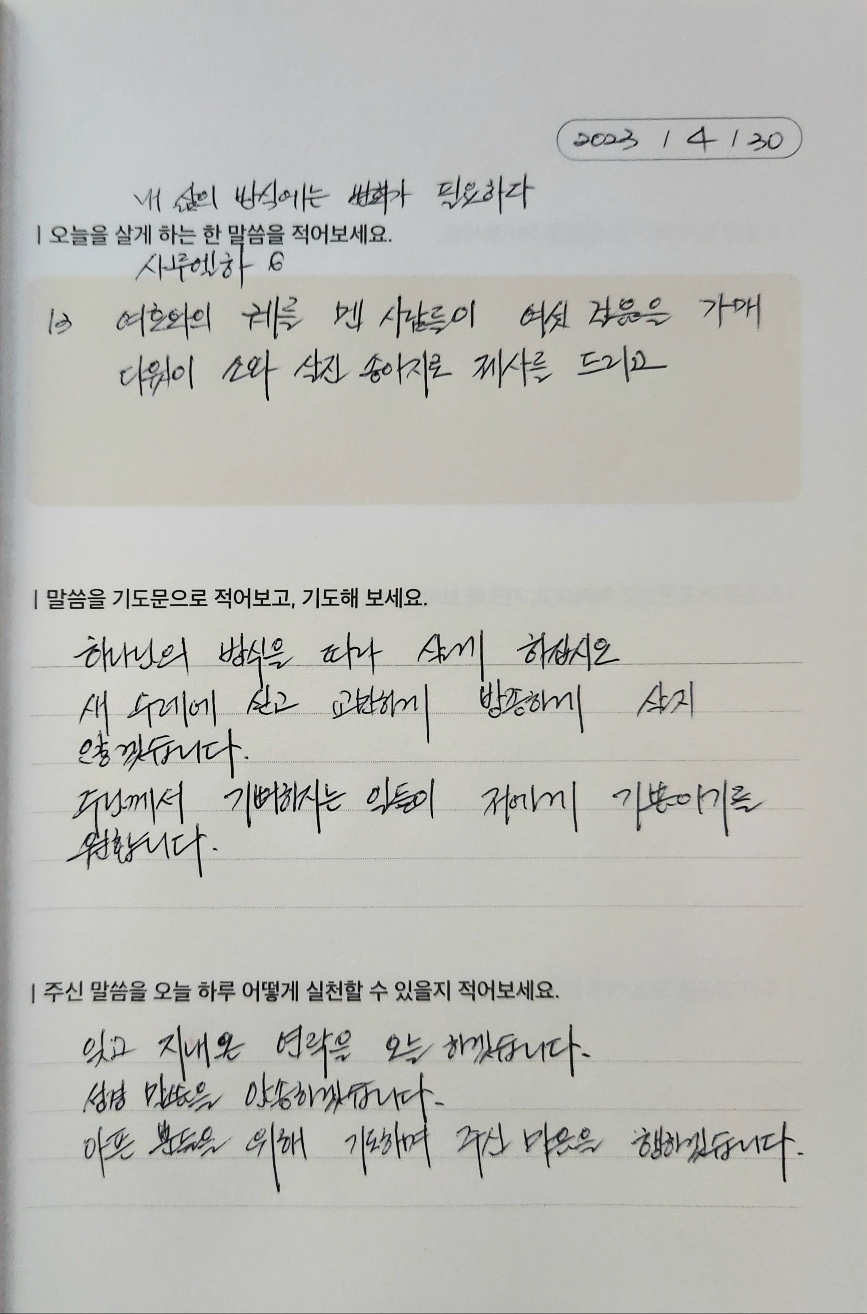 2023 / 4 / 30
내 삶의 방식에는 변화가 필요하다
| 오늘을 살게 하는 한 말씀을 적어보세요.
사무엘하 6
13 여호와의 궤를 멘 사람들이 여섯 걸음을 가매
다윗이 소와 살진 송아지로 제사를 드리고
| 말씀을 기도문으로 적어보고, 기도해 보세요.
하나님의 방식을 따라 살게 하십시오
새 수레에 싣고 교만하게 방종하게 살지
않겠습니다.
주님께서 기뻐하시는 일들이 저에게 가득하기를
원합니다.
| 주신 말씀을 오늘 하루 어떻게 실천할 수 있을지 적어보세요.
잊고 지내온 연락을 오늘 하겠습니다.
성경 말씀을 암송하겠습니다.
아픈 분들을 위해 기도하며 주신 마음을 행하겠습니다.